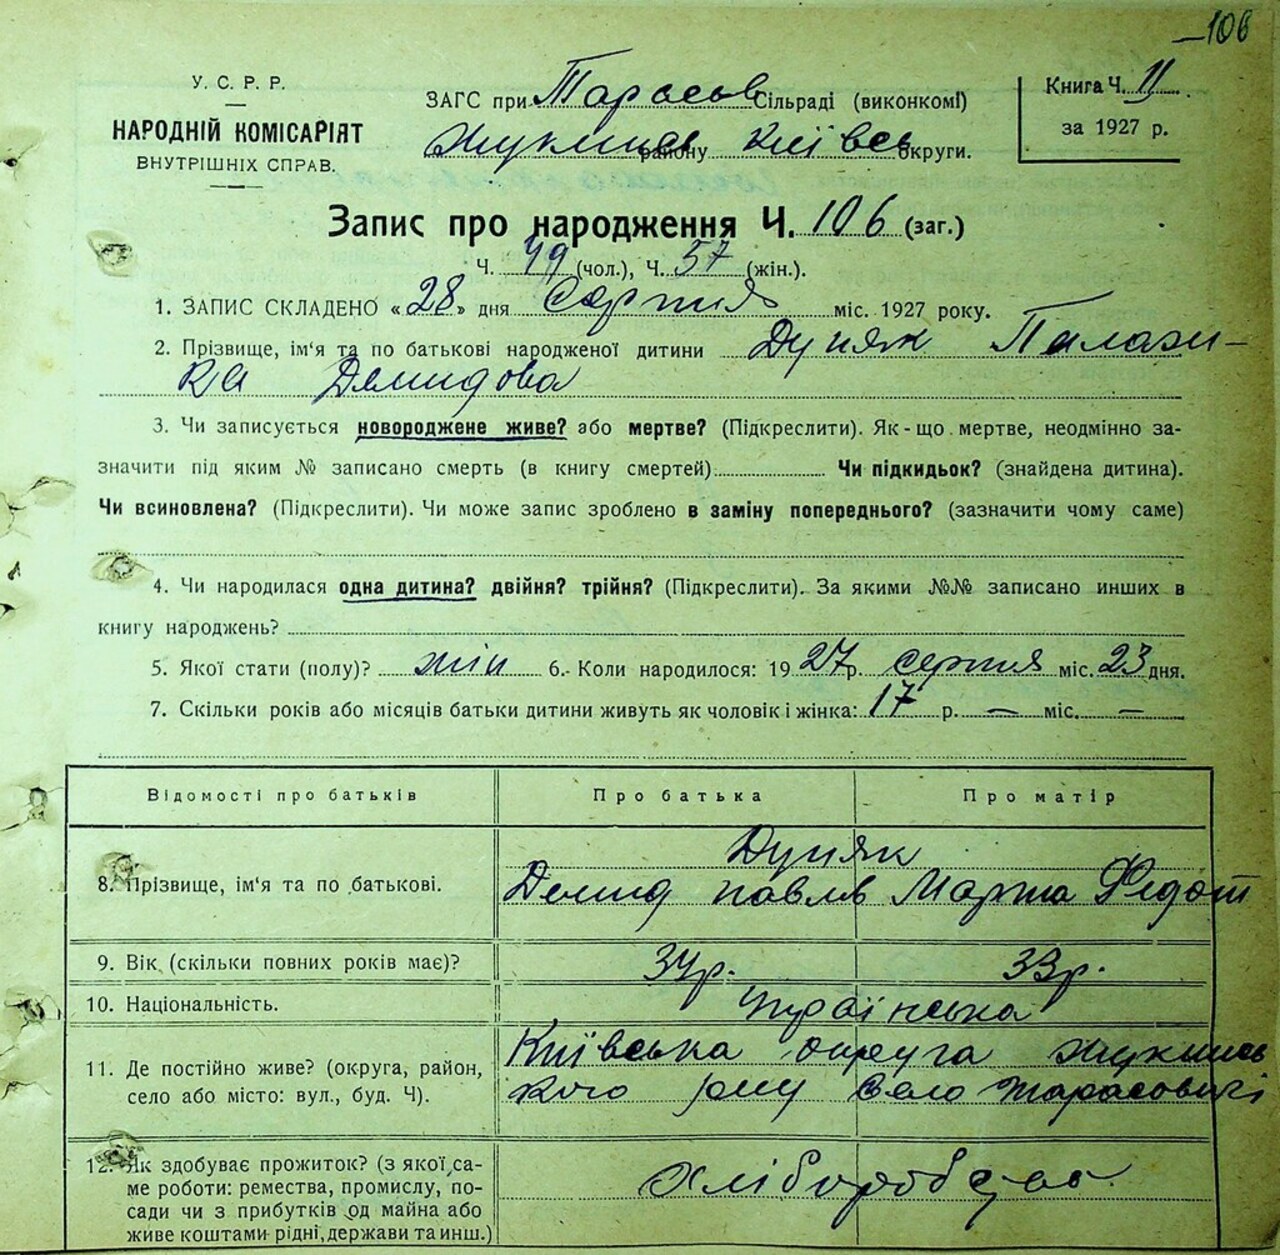 106
У. С. Р. Р.
НАРОДНІЙ КОМІСАРІЯТ
ВНУТРІШНІХ СПРАВ.
ЗАГС при Тарасов Сільраді (виконкомі)
Жукинсь району Київсь округи.
Книга Ч. II
за 1927 р.
Запис про народження Ч. 106 (заг.)
Ч. 49 (чол.), Ч. 57 (жін.).
1. ЗАПИС СКЛАДЕНО «28» дня Серпня міс. 1927 року.
2. Прізвище, ім'я та по батькові народженої дитини Дуняк Палаж-
ка Демидова
3. Чи записується новороджене живе? або мертве? (Підкреслити). Як-що мертве, неодмінно за-
значити під яким № записано смерть (в книгу смертей) Чи підкидьок? (знайдена дитина).
Чи всиновлена? (Підкреслити). Чи може запис зроблено в заміну попереднього? (зазначити чому саме)
4. Чи народилася одна дитина? двійня? трійня? (Підкреслити). За якими №№ записано инших в
книгу народжень?
5. Якої стати (полу)? жін 6. Коли народилося: 1927 р. серпня міс. 23 дня.
7. Скільки років або місяців батьки дитини живуть як чоловік і жінка: 17 р. — міс. —
Відомості про батьків Про батька Про матір
Дуняк
8. Прізвище, ім'я та по батькові. Демид павлів Марта Федот
9. Вік (скільки повних років має)? 34р. 33р.
10. Національність. Українська
11. Де постійно живе? (округа, район, Київська округа Жукинсь
село або місто: вул., буд. Ч). кого рну Село Тарасовичі
12. Як здобуває прожиток? (з якої са-
ме роботи: ремества, промислу, по- Хліборобство
сади чи з прибутків од майна або
живе коштами рідні, держави та инш.)